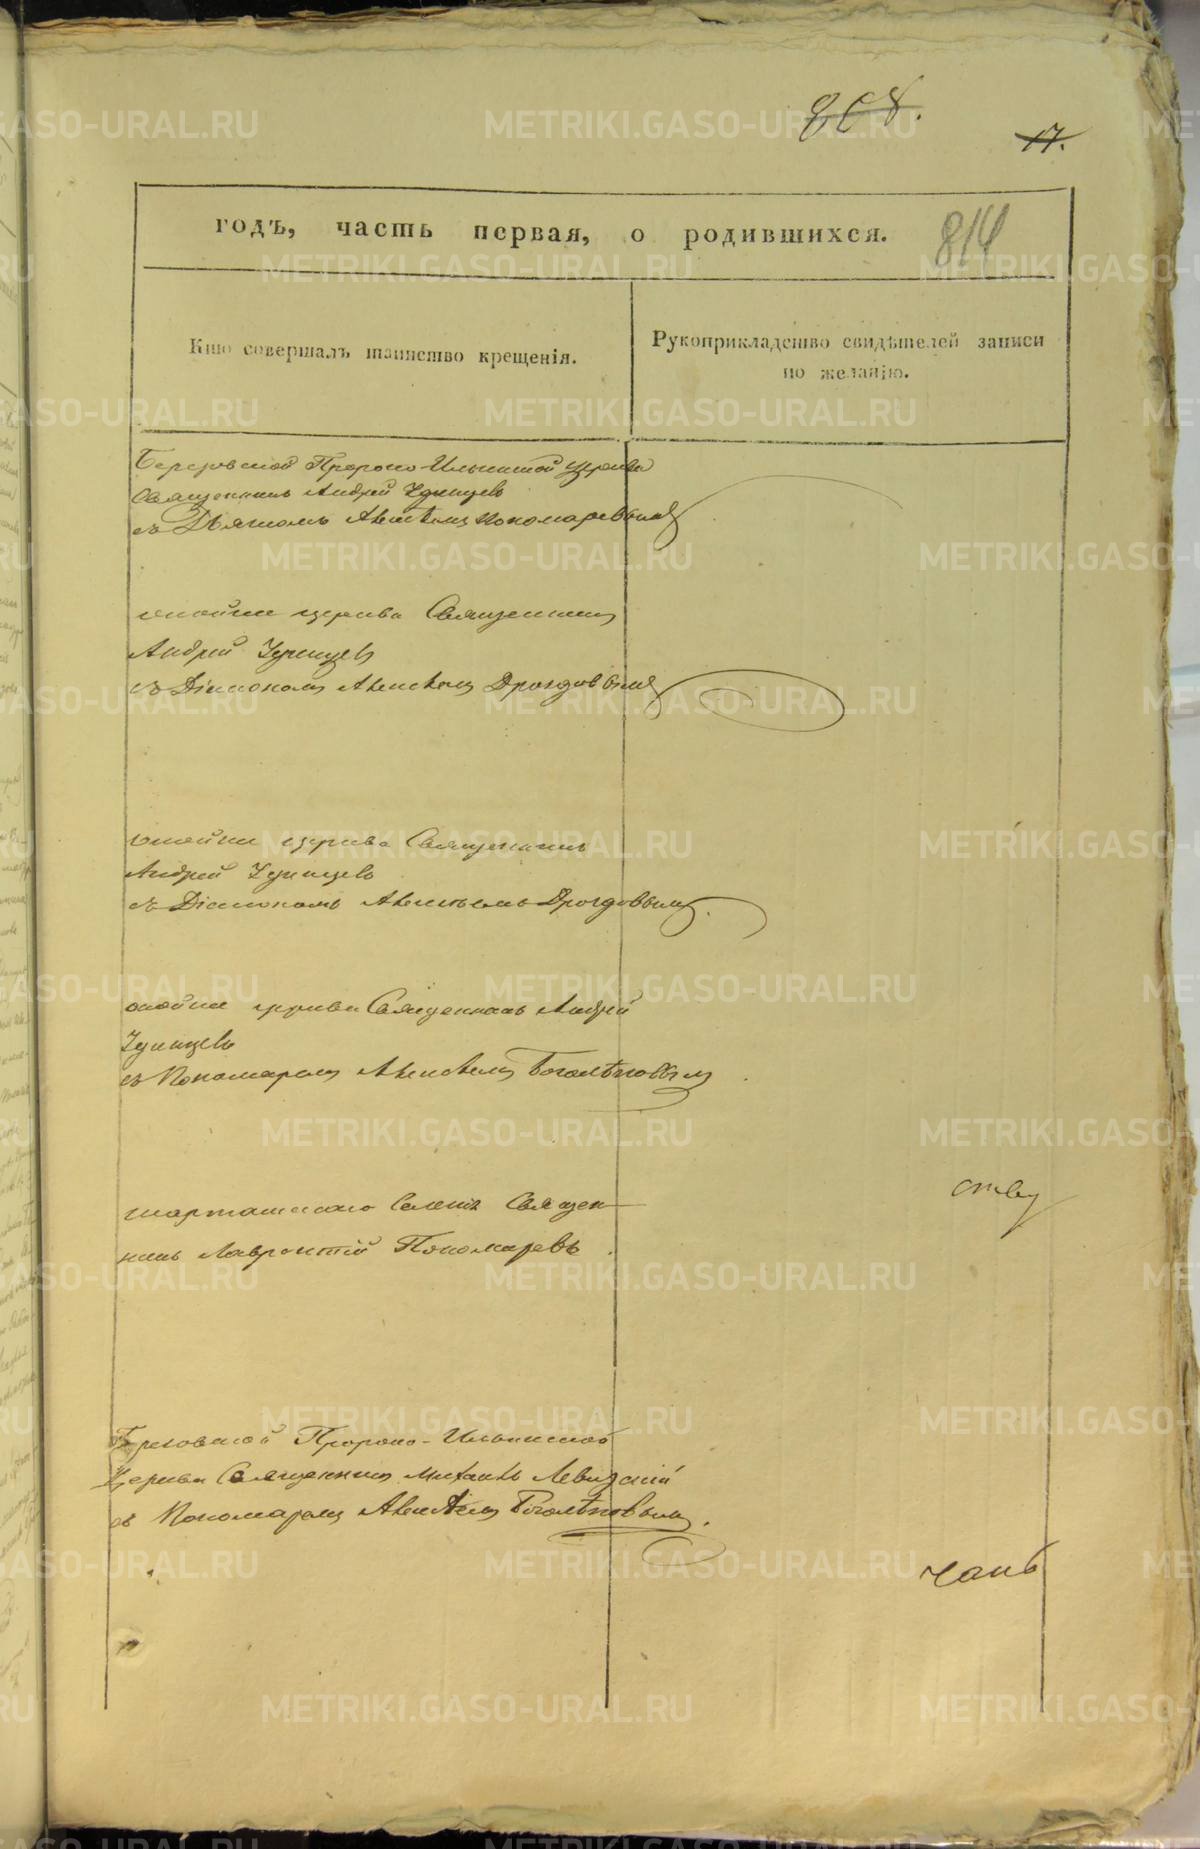 808.
17.
814
годъ, часть первая, о родившихся.
Кто совершалъ таинство крещенія.
Рукоприкладство свидѣтелей записи
по желанію.
Березовской Пророко-Ильинской церкви
Священникъ Андрей Удинцевъ
съ Дьячкомъ Алексѣемъ Пономаревымъ
тойже церкви Священникъ
Андрей Удинцевъ
съ Діакономъ Алексѣемъ Дроздовымъ
тойже церкви Священникъ
Андрей Удинцевъ
съ Діакономъ Алексѣемъ Дроздовымъ.
тойже церкви Священникъ Андрей
Удинцевъ
съ Пономаремъ Алексѣемъ Боголѣповымъ
Шарташскаго Селенія Священ-
никъ Лаврентій Пономаревъ.
Березовской Пророко-Ильинской
Церкви Священникъ Михаилъ Левицкій
съ Пономаремъ Алексѣемъ Боголѣповымъ.
METRIKI.GASO-URAL.RU